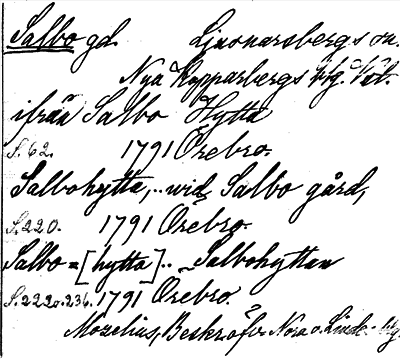 Salbo gd. Ljusnarsbergs sn.
Nya Kopparbergs bg. Vstm.
ifrån Salbo Hytta
S. 62. 1791 Örebro.
Salbohytta,.. wid Salbo gård,
S. 220. 1791 Örebro.
Salbo=[hytta].. Salbohyttan
S. 222 o. 236. 1791 Örebro.
Mozelius, Beskr. öfv. Nora o. Linde bg.